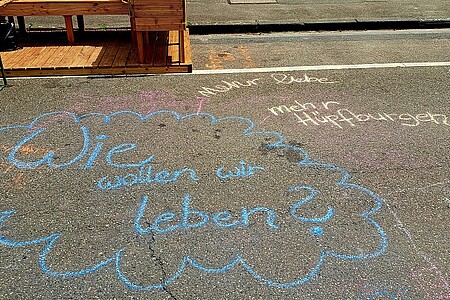 Mehr liebe
mehr
Hüpfburgen
Wie
wollen wir
leben?